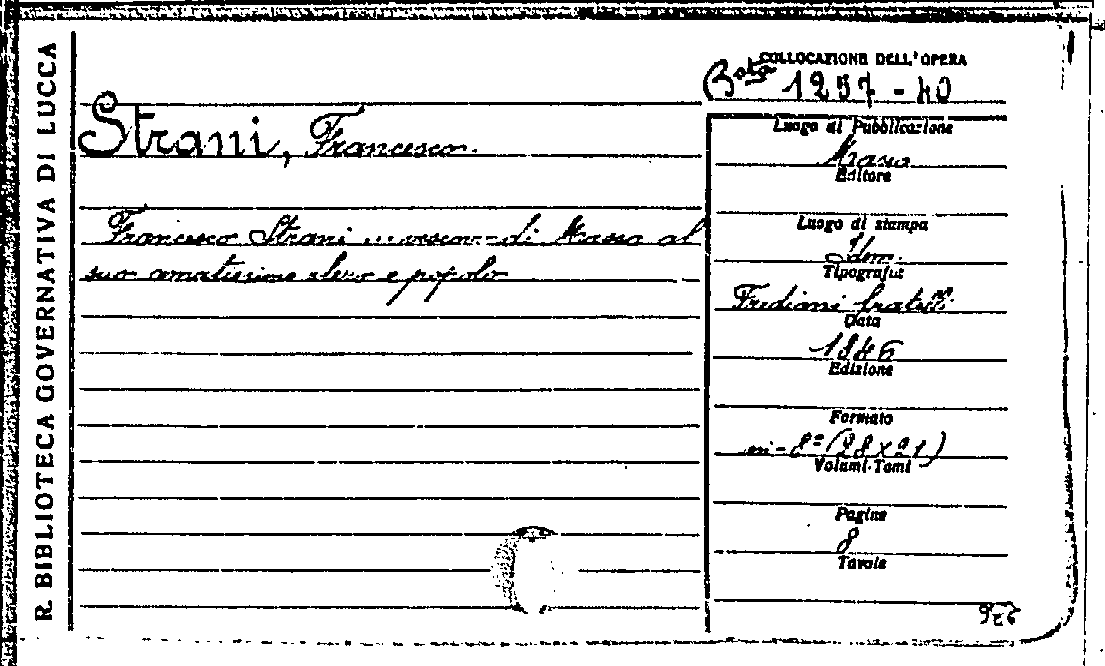 R. BIBLIOTECA GOVERNATIVA DI LUCCA
COLLOCAZIONE DELL'OPERA
Bsta 1257 - 40
Strani, Francesco.
Francesco Strani ... vescovo di Massa al
suo amatissimo clero e popolo
Luogo di Pubblicazione
Massa
Editore
Luogo di stampa
Idem.
Tipografia
Frediani fratelli
Data
1846
Edizione
Formato
in-8º (28 x 21)
Volumi-Tomi
Pagine
8
Tavole